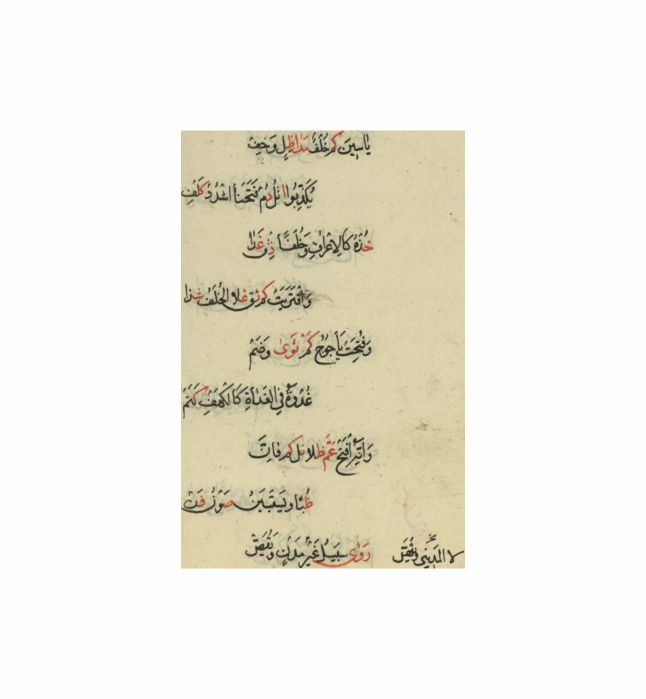 يَاسِينَ كَمْ خُلْفُ مَدَا ظِلٍّ وَخِفْ
يُكَذِّبُوا اتْلُ رُمْ فَتَحْنَا اشْدُدْ كَلِفْ
خُذْهُ كَالاعْرَافِ وَخُلْفًا ذُقْ غَدَا
وَاقْتَرَبَتْ كَمْ ثِقْ غَلَا الْخُلْفُ شَذَا
وَفُتِحَتْ يَأْجُوجُ كَمْ ثَوَى وَضَمْ
غُدْوَةُ فِي الْغَدَاةِ كَالْكَهْفِ كَتَمْ
وَإِنَّهُ افْتَحْ عَمَّ ظِلًّا نَلْ كَمْ فَإِنْ
ظُبًا وَيَسْتَبِينَ صَوْنُ فَنْ
رَوَى سَبِيلُ غَيْرُ مَدَنٍ وَيَقُصّ
لا المَدِيني وَيَقُصّ